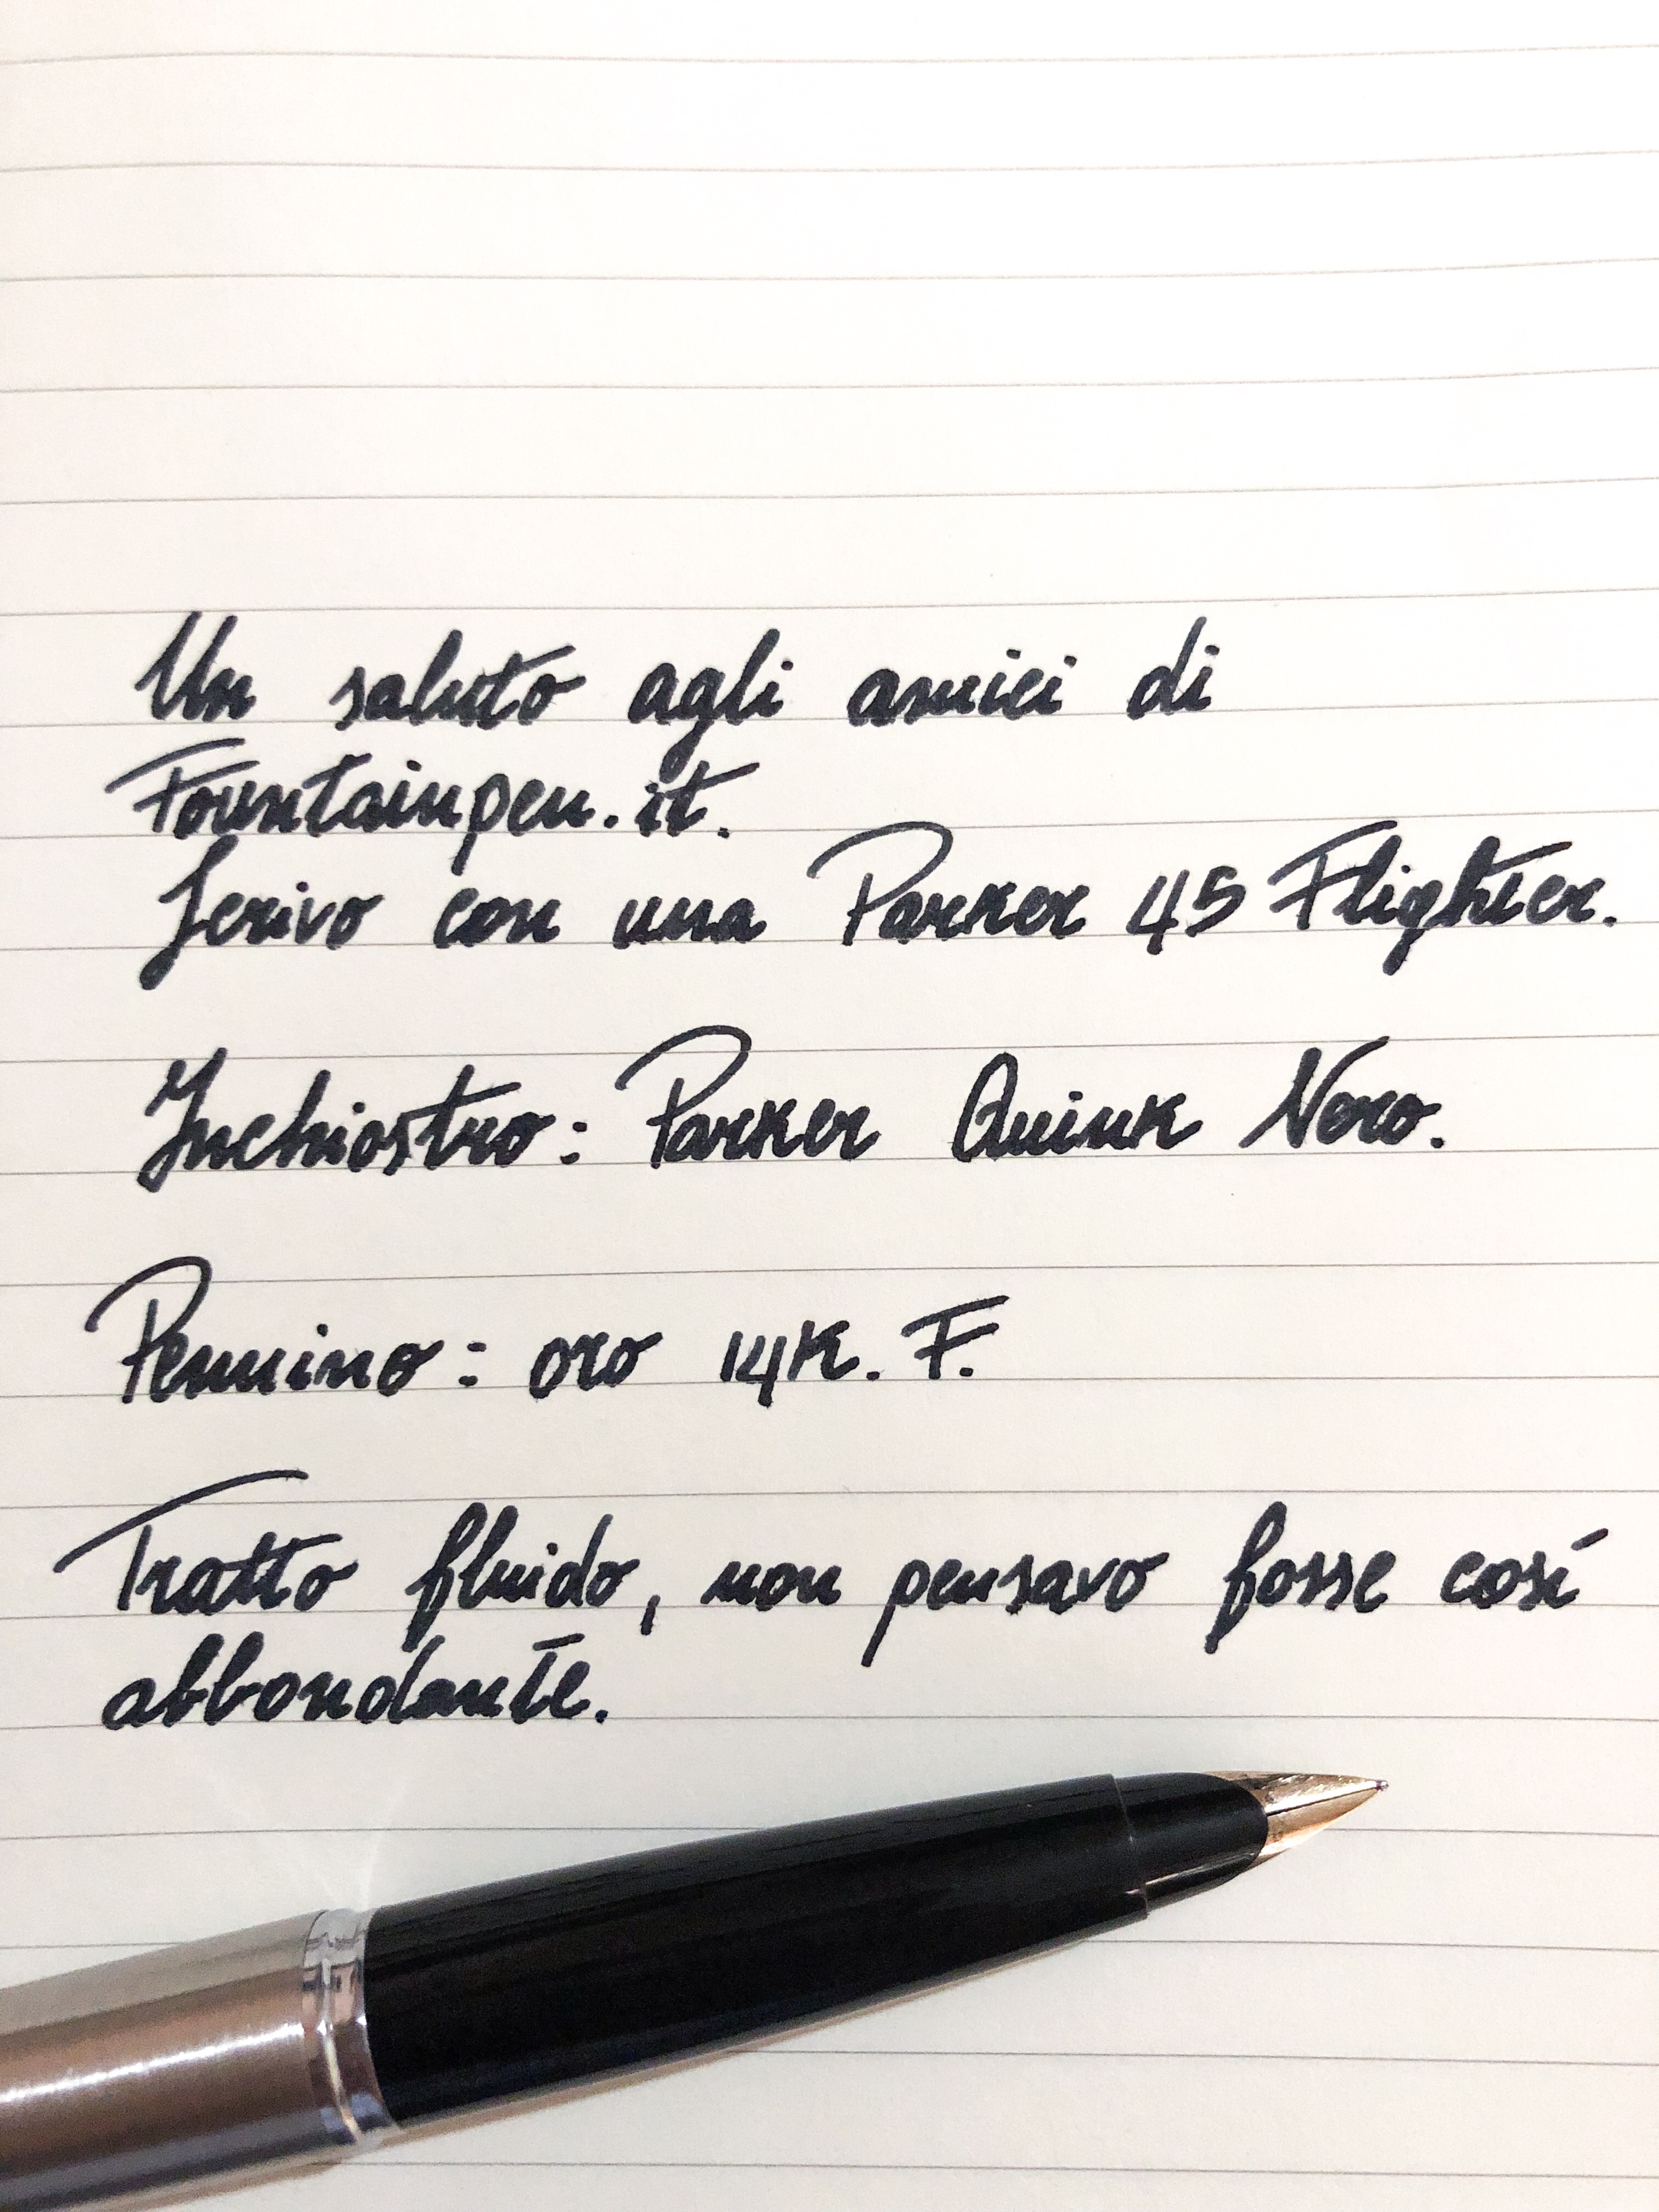 Un saluto agli amici di
Fountainpen.it.
Scrivo con una Parker 45 Flighter.
Inchiostro: Parker Quink Nero.
Pennino: oro 14K. F.
Tratto fluido, non pensavo fosse così
abbondante.